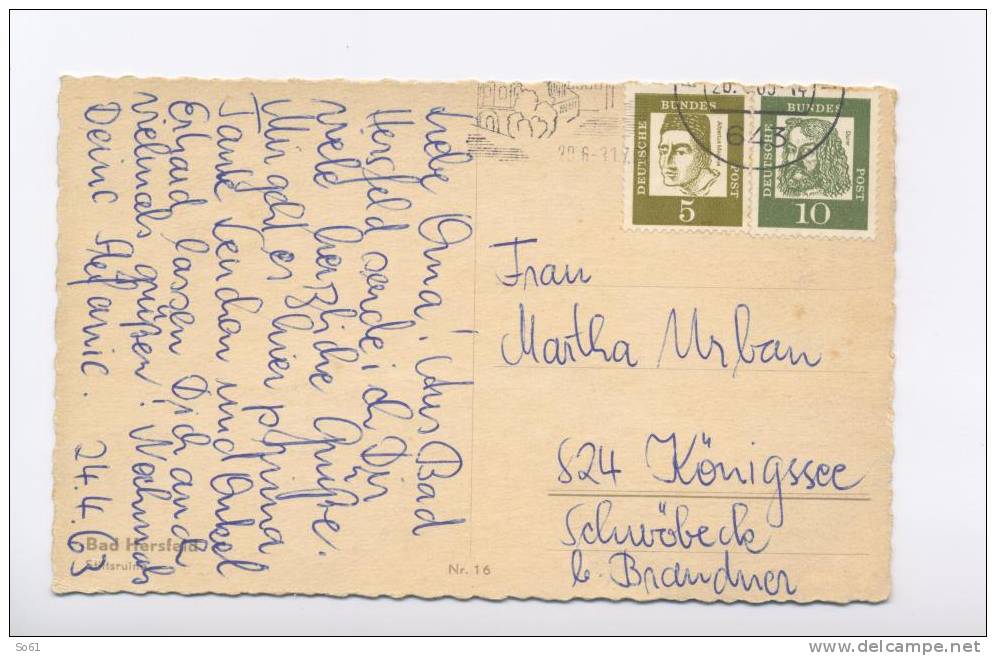 Liebe Oma! Aus Bad
Hersfeld sende ich Dir
viele herzliche Grüße.
Mir geht es hier prima
Tante Lenchen und Onkel
Erhard lassen Dich auch
vielmals grüßen! Nochmals
Deine Stefanie. 24.4.63
Bad Hersfeld
Stiftsruine
Nr. 16
20.6-31.7
DEUTSCHE
BUNDES
POST
Albertus Magnus
5
DEUTSCHE
BUNDES
POST
Dürer
10
643
Frau
Martha Urban
824 Königssee
Schwöbeck
b. Brandner
So61
www.delcampe.net